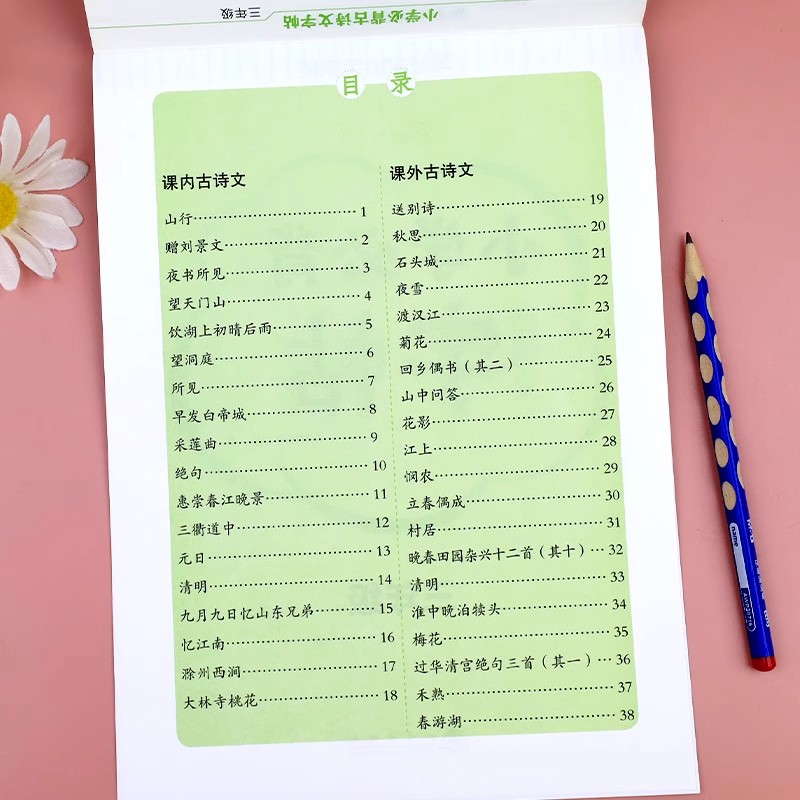 小学必背古诗文字帖
三年级
目 录
课内古诗文
山行 1
赠刘景文 2
夜书所见 3
望天门山 4
饮湖上初晴后雨 5
望洞庭 6
所见 7
早发白帝城 8
采莲曲 9
绝句 10
惠崇春江晚景 11
三衢道中 12
元日 13
清明 14
九月九日忆山东兄弟 15
忆江南 16
滁州西涧 17
大林寺桃花 18
课外古诗文
送别诗 19
秋思 20
石头城 21
夜雪 22
渡汉江 23
菊花 24
回乡偶书（其二） 25
山中问答 26
花影 27
江上 28
悯农 29
立春偶成 30
村居 31
晚春田园杂兴十二首（其十） 32
清明 33
淮中晚泊犊头 34
梅花 35
过华清宫绝句三首（其一） 36
禾熟 37
春游湖 38
name